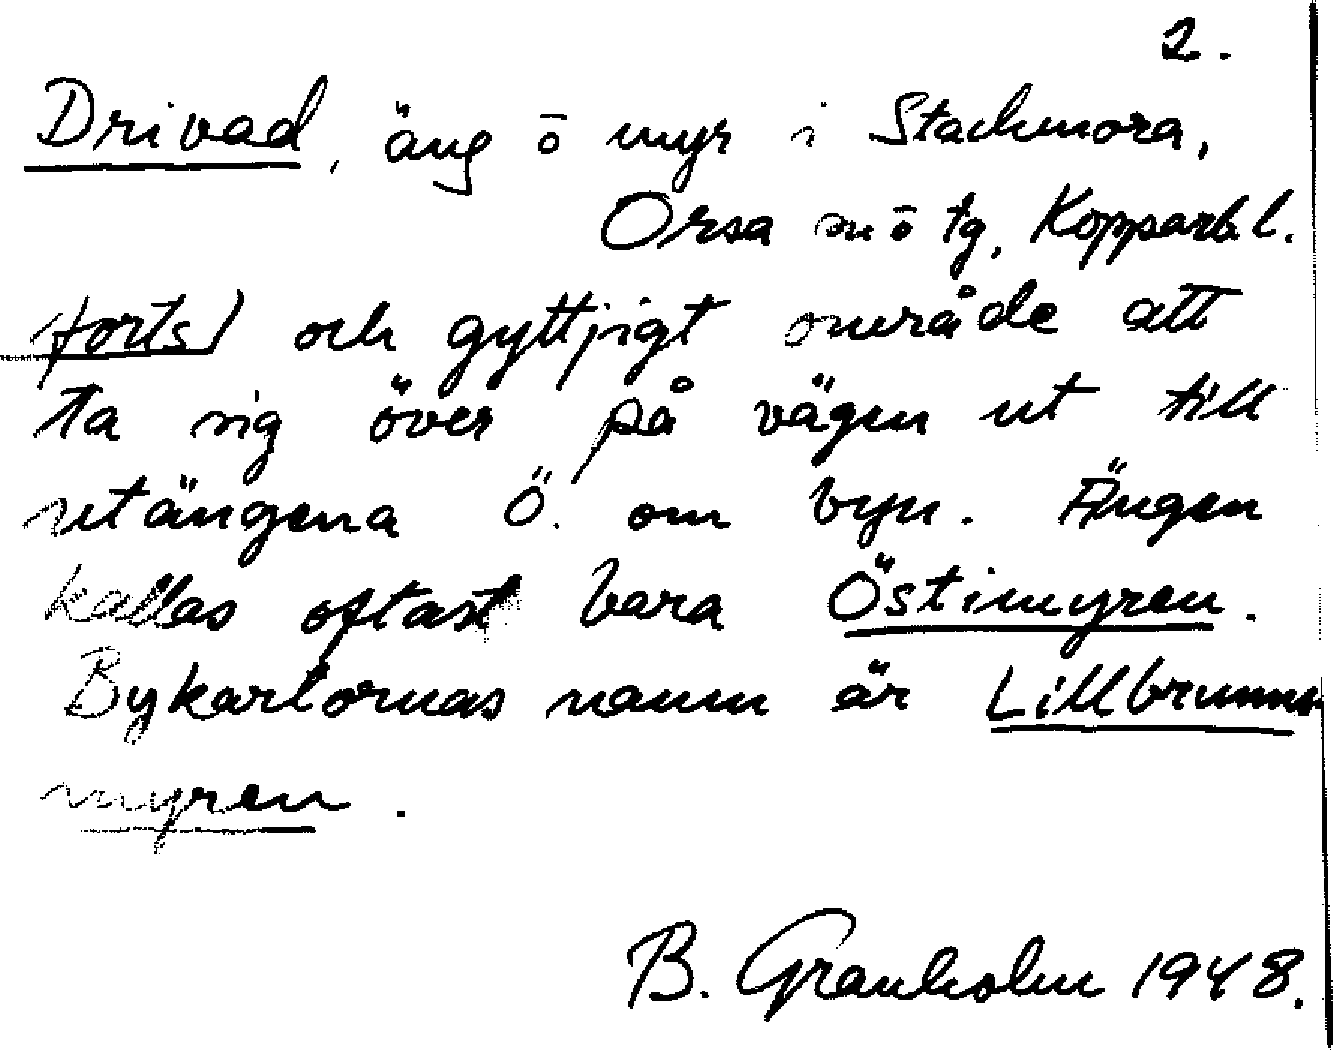 2.
Drivad, äng ō myr i Stackmora,
Orsa sn ō tg, Kopparb.l.
forts) och gyttjigt område att
ta sig över på vägen ut till
utängena Ö. om byn. Ängen
kallas oftast bara Östimyren.
Bykartornas namn är Lillbrunns
myren.
B. Granholm 1948.